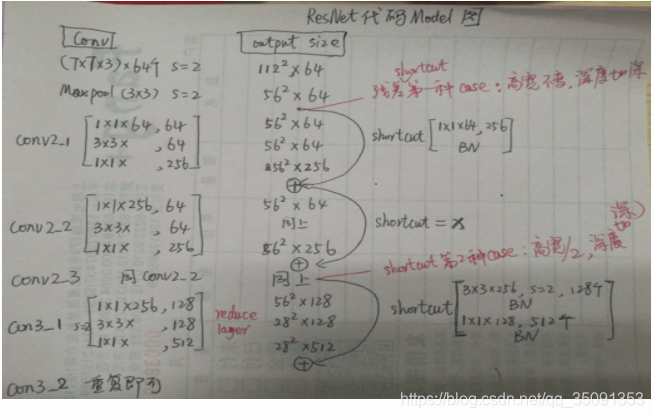 ResNet 代码 Model 图
Conv output size
(7×7×3)×64个 s=2 112²×64
Maxpool (3×3) s=2 56²×64
shortcut
残差第一种 case：高宽不变，深度加深
Conv2_1 [1×1×64, 64 56²×64
3×3× , 64 56²×64
1×1× , 256] 56²×256
shortcut [1×1×64, 256
BN]
⊕
Conv2_2 [1×1×256, 64 56²×64
3×3× , 64 同上
1×1× , 256] 56²×256
shortcut = x
⊕
shortcut 第2种case：高宽/2，深度加深
Conv2_3 同 Conv2_2 同上
Con3_1 s=2 [1×1×256, 128 56²×128
3×3× , 128 28²×128
1×1× , 512] 28²×512
reduce
layer
shortcut [3×3×256, s=2, 128个
BN
1×1×128, 512个
BN]
⊕
Con3_2 重复即可
https://blog.csdn.net/qq_35091353